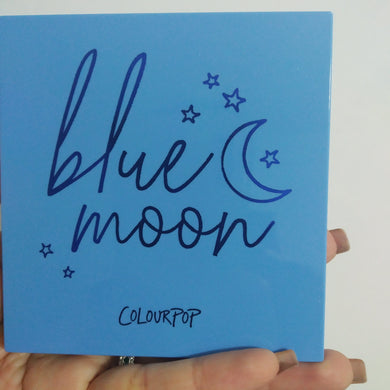 blue
moon
COLOURPOP